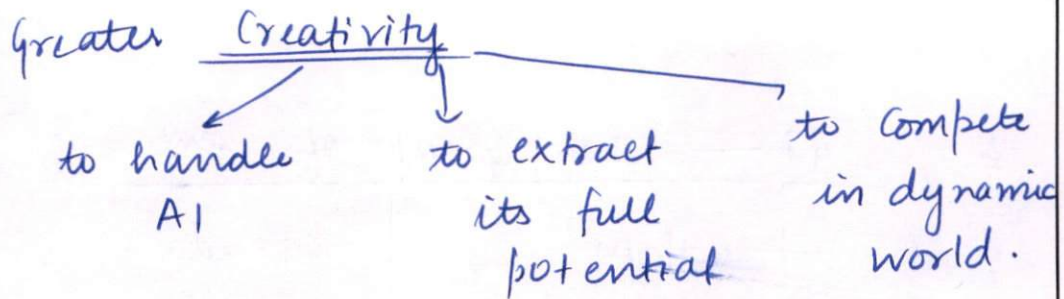 Greater Creativity
to handle
AI
to extract
its full
potential
to compete
in dynamic
world.